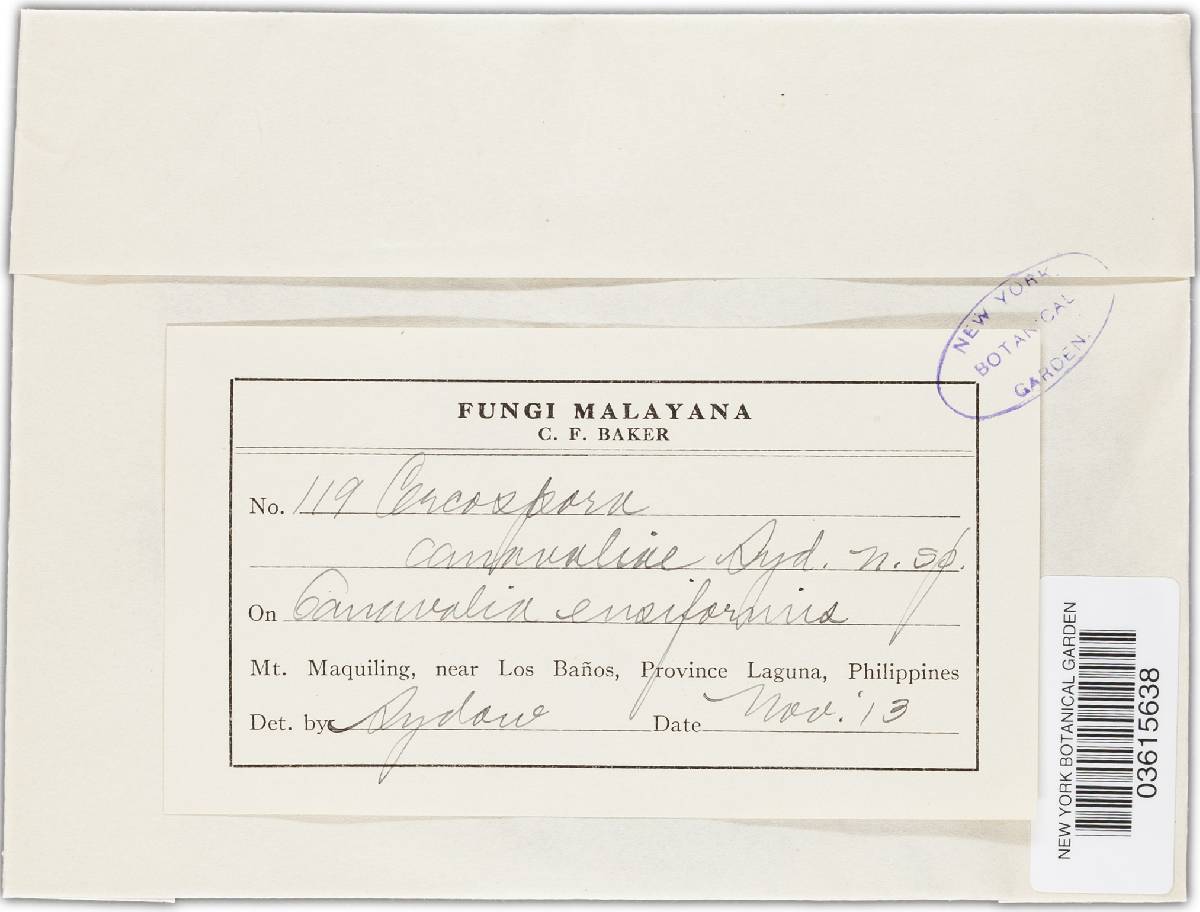 NEW YORK
BOTANICAL
GARDEN.
FUNGI MALAYANA
C. F. BAKER
No. 119 Cercospora
canavaliae Syd. n. sp.
On Canavalia ensiformis
Mt. Maquiling, near Los Baños, Province Laguna, Philippines
Det. by Sydow Date Nov. '13
NEW YORK BOTANICAL GARDEN
03615638